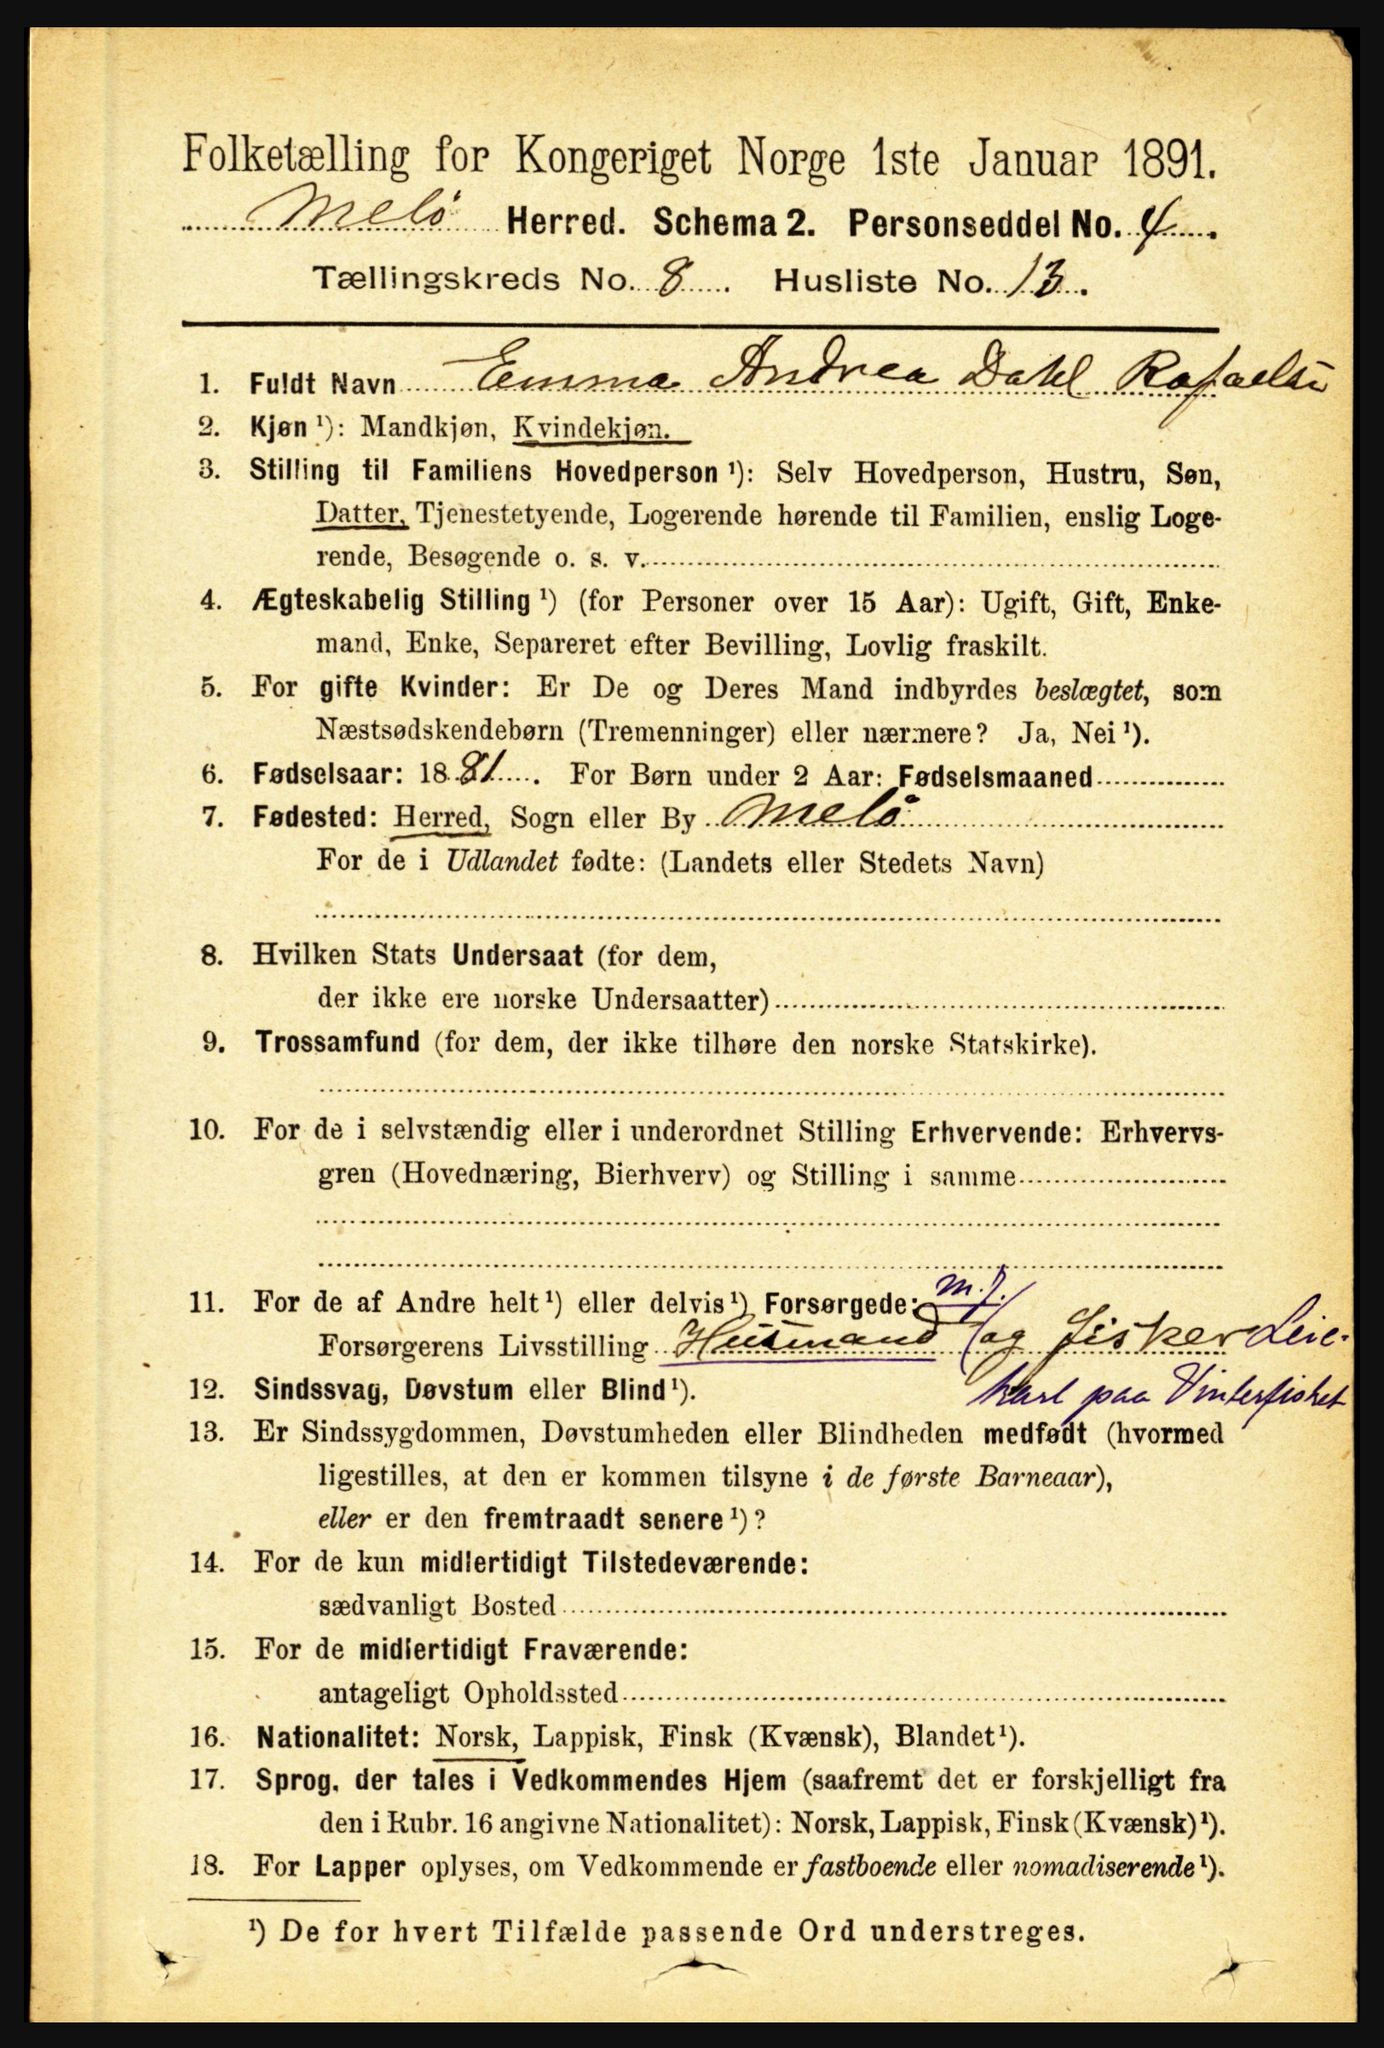 Folketælling for Kongeriget Norge 1ste Januar 1891.
Melö Herred. Schema 2. Personseddel No. 4.
Tællingskreds No. 8. Husliste No. 13.
1. Fuldt Navn Emma Andrea Dahl Rafaels
2. Kjøn ¹): Mandkjøn, Kvindekjøn.
3. Stilling til Familiens Hovedperson ¹): Selv Hovedperson, Hustru, Søn,
Datter, Tjenestetyende, Logerende hørende til Familien, enslig Loge-
rende, Besøgende o. s. v.
4. Ægteskabelig Stilling ¹) (for Personer over 15 Aar): Ugift, Gift, Enke-
mand, Enke, Separeret efter Bevilling, Lovlig fraskilt.
5. For gifte Kvinder: Er De og Deres Mand indbyrdes beslægtet, som
Næstsødskendebørn (Tremenninger) eller nærmere? Ja, Nei ¹).
6. Fødselsaar: 1881. For Børn under 2 Aar: Fødselsmaaned
7. Fødested: Herred, Sogn eller By Melö
For de i Udlandet fødte: (Landets eller Stedets Navn)
8. Hvilken Stats Undersaat (for dem,
der ikke ere norske Undersaatter)
9. Trossamfund (for dem, der ikke tilhøre den norske Statskirke).
10. For de i selvstændig eller i underordnet Stilling Erhvervende: Erhvervs-
gren (Hovednæring, Bierhverv) og Stilling i samme
11. For de af Andre helt ¹) eller delvis ¹) Forsørgede: m. J.
Forsørgerens Livsstilling Husmand (og fisker Leie-
karl paa Vinterfisket
12. Sindssvag, Døvstum eller Blind ¹).
13. Er Sindssygdommen, Døvstumheden eller Blindheden medfødt (hvormed
ligestilles, at den er kommen tilsyne i de første Barneaar),
eller er den fremtraadt senere ¹)?
14. For de kun midlertidigt Tilstedeværende:
sædvanligt Bosted
15. For de midlertidigt Fraværende:
antageligt Opholdssted
16. Nationalitet: Norsk, Lappisk, Finsk (Kvænsk), Blandet ¹).
17. Sprog, der tales i Vedkommendes Hjem (saafremt det er forskjelligt fra
den i Rubr. 16 angivne Nationalitet): Norsk, Lappisk, Finsk (Kvænsk) ¹).
18. For Lapper oplyses, om Vedkommende er fastboende eller nomadiserende ¹).
¹) De for hvert Tilfælde passende Ord understreges.